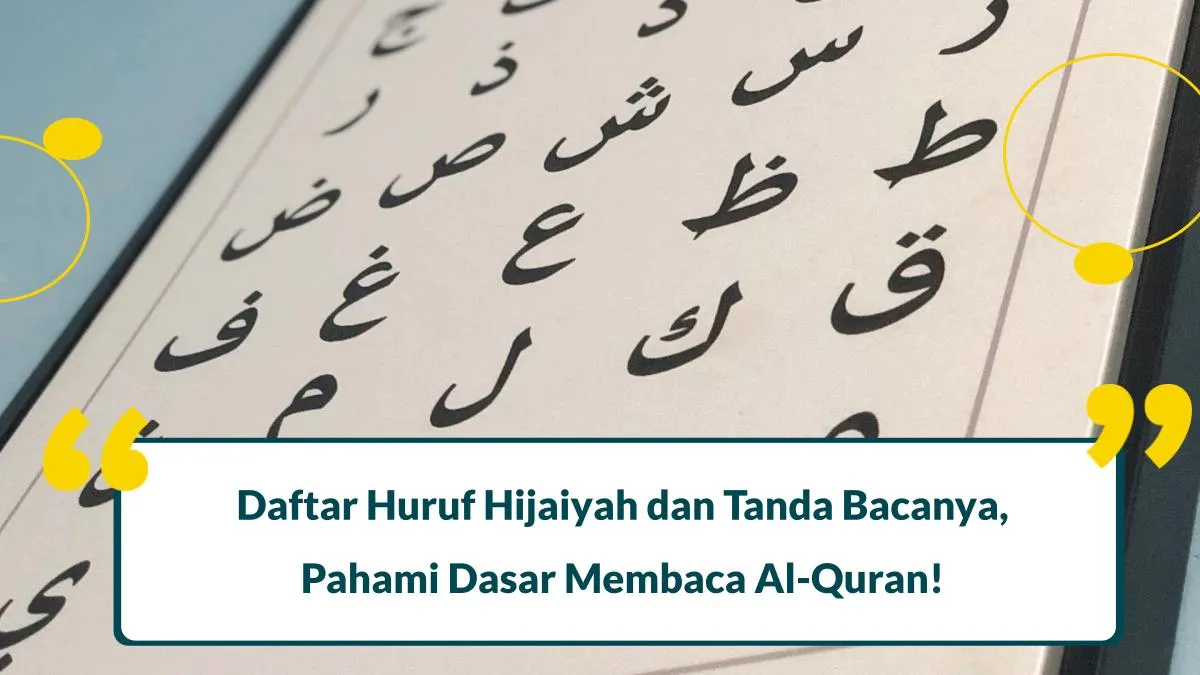 ج
د ذ ر
س ش ص ض
ط ظ ع غ ف
ق ك ل م
ي
Daftar Huruf Hijaiyah dan Tanda Bacanya,
Pahami Dasar Membaca Al-Quran!